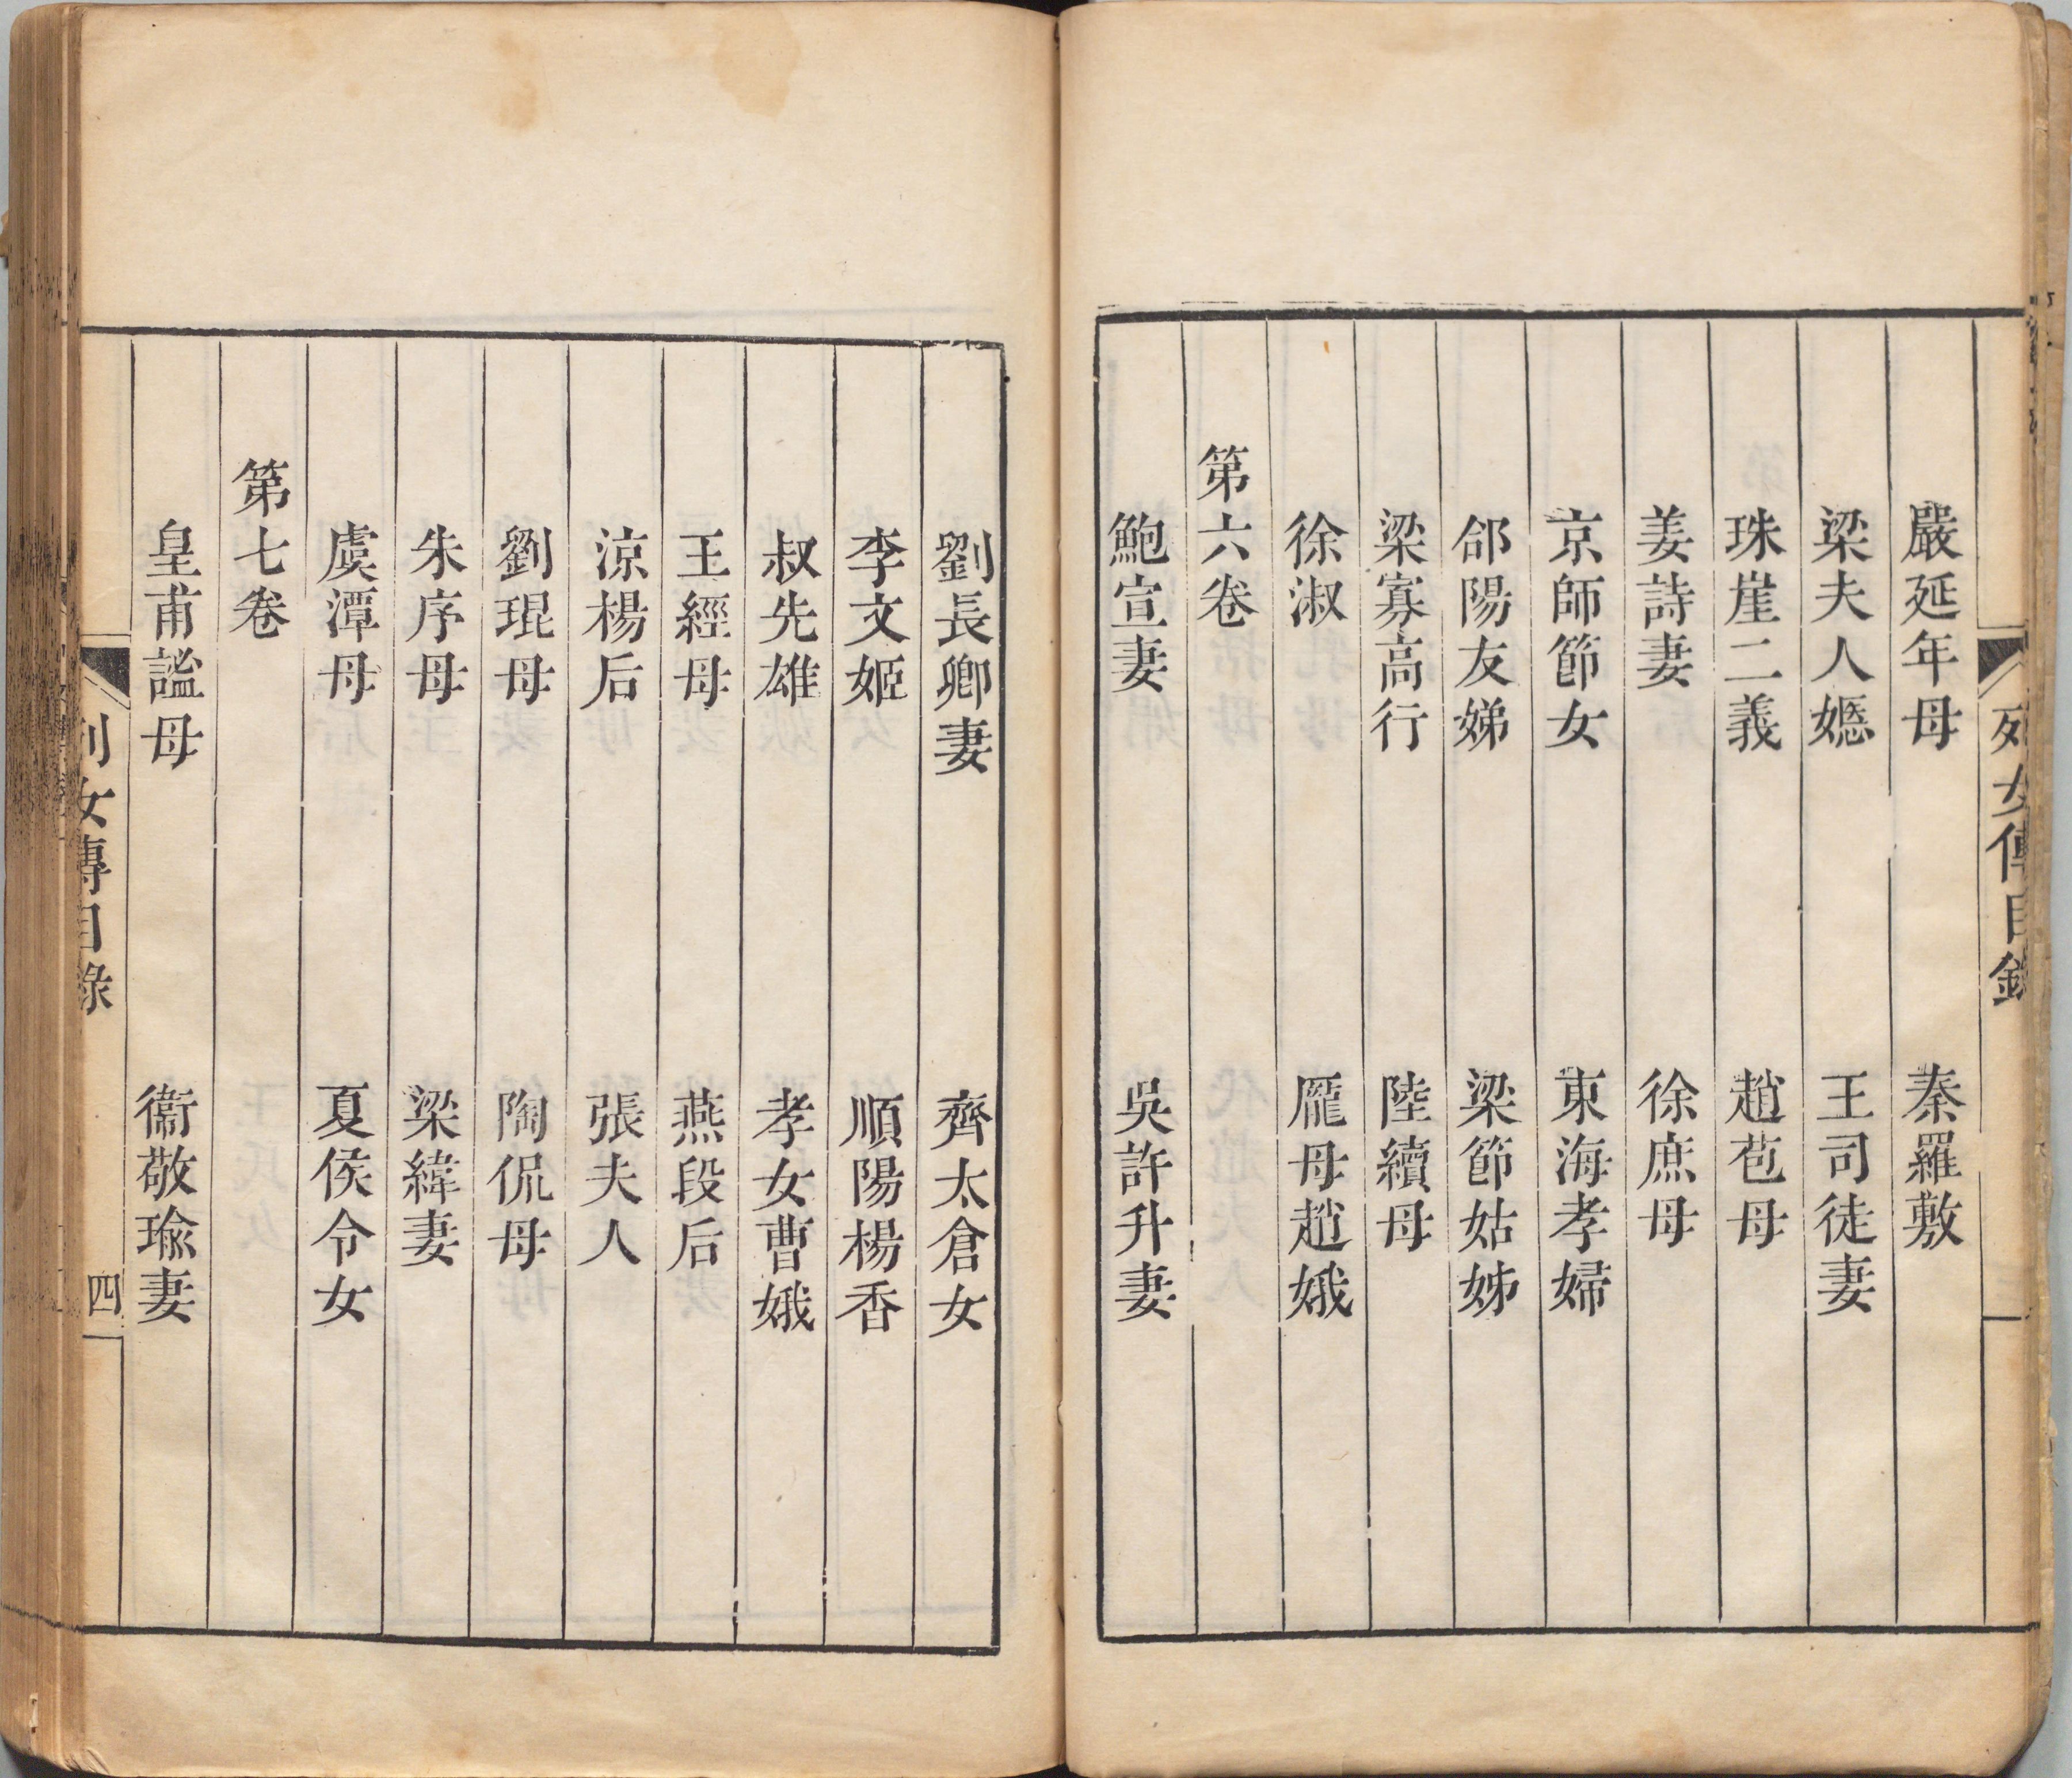 列女傳目錄
嚴延年母 秦羅敷
梁夫人嫕 王司徒妻
珠崖二義 趙苞母
姜詩妻 徐庶母
京師節女 東海孝婦
郃陽友娣 梁節姑姊
梁寡高行 陸續母
徐淑 龎母趙娥
第六卷
鮑宣妻 吳許升妻
劉長卿妻 齊太倉女
李文姬 順陽楊香
叔先雄 孝女曹娥
王經母 燕段后
涼楊后 張夫人
劉琨母 陶侃母
朱序母 梁緯妻
虞潭母 夏侯令女
第七卷
皇甫謐母 衞敬瑜妻
列女傳目錄 四